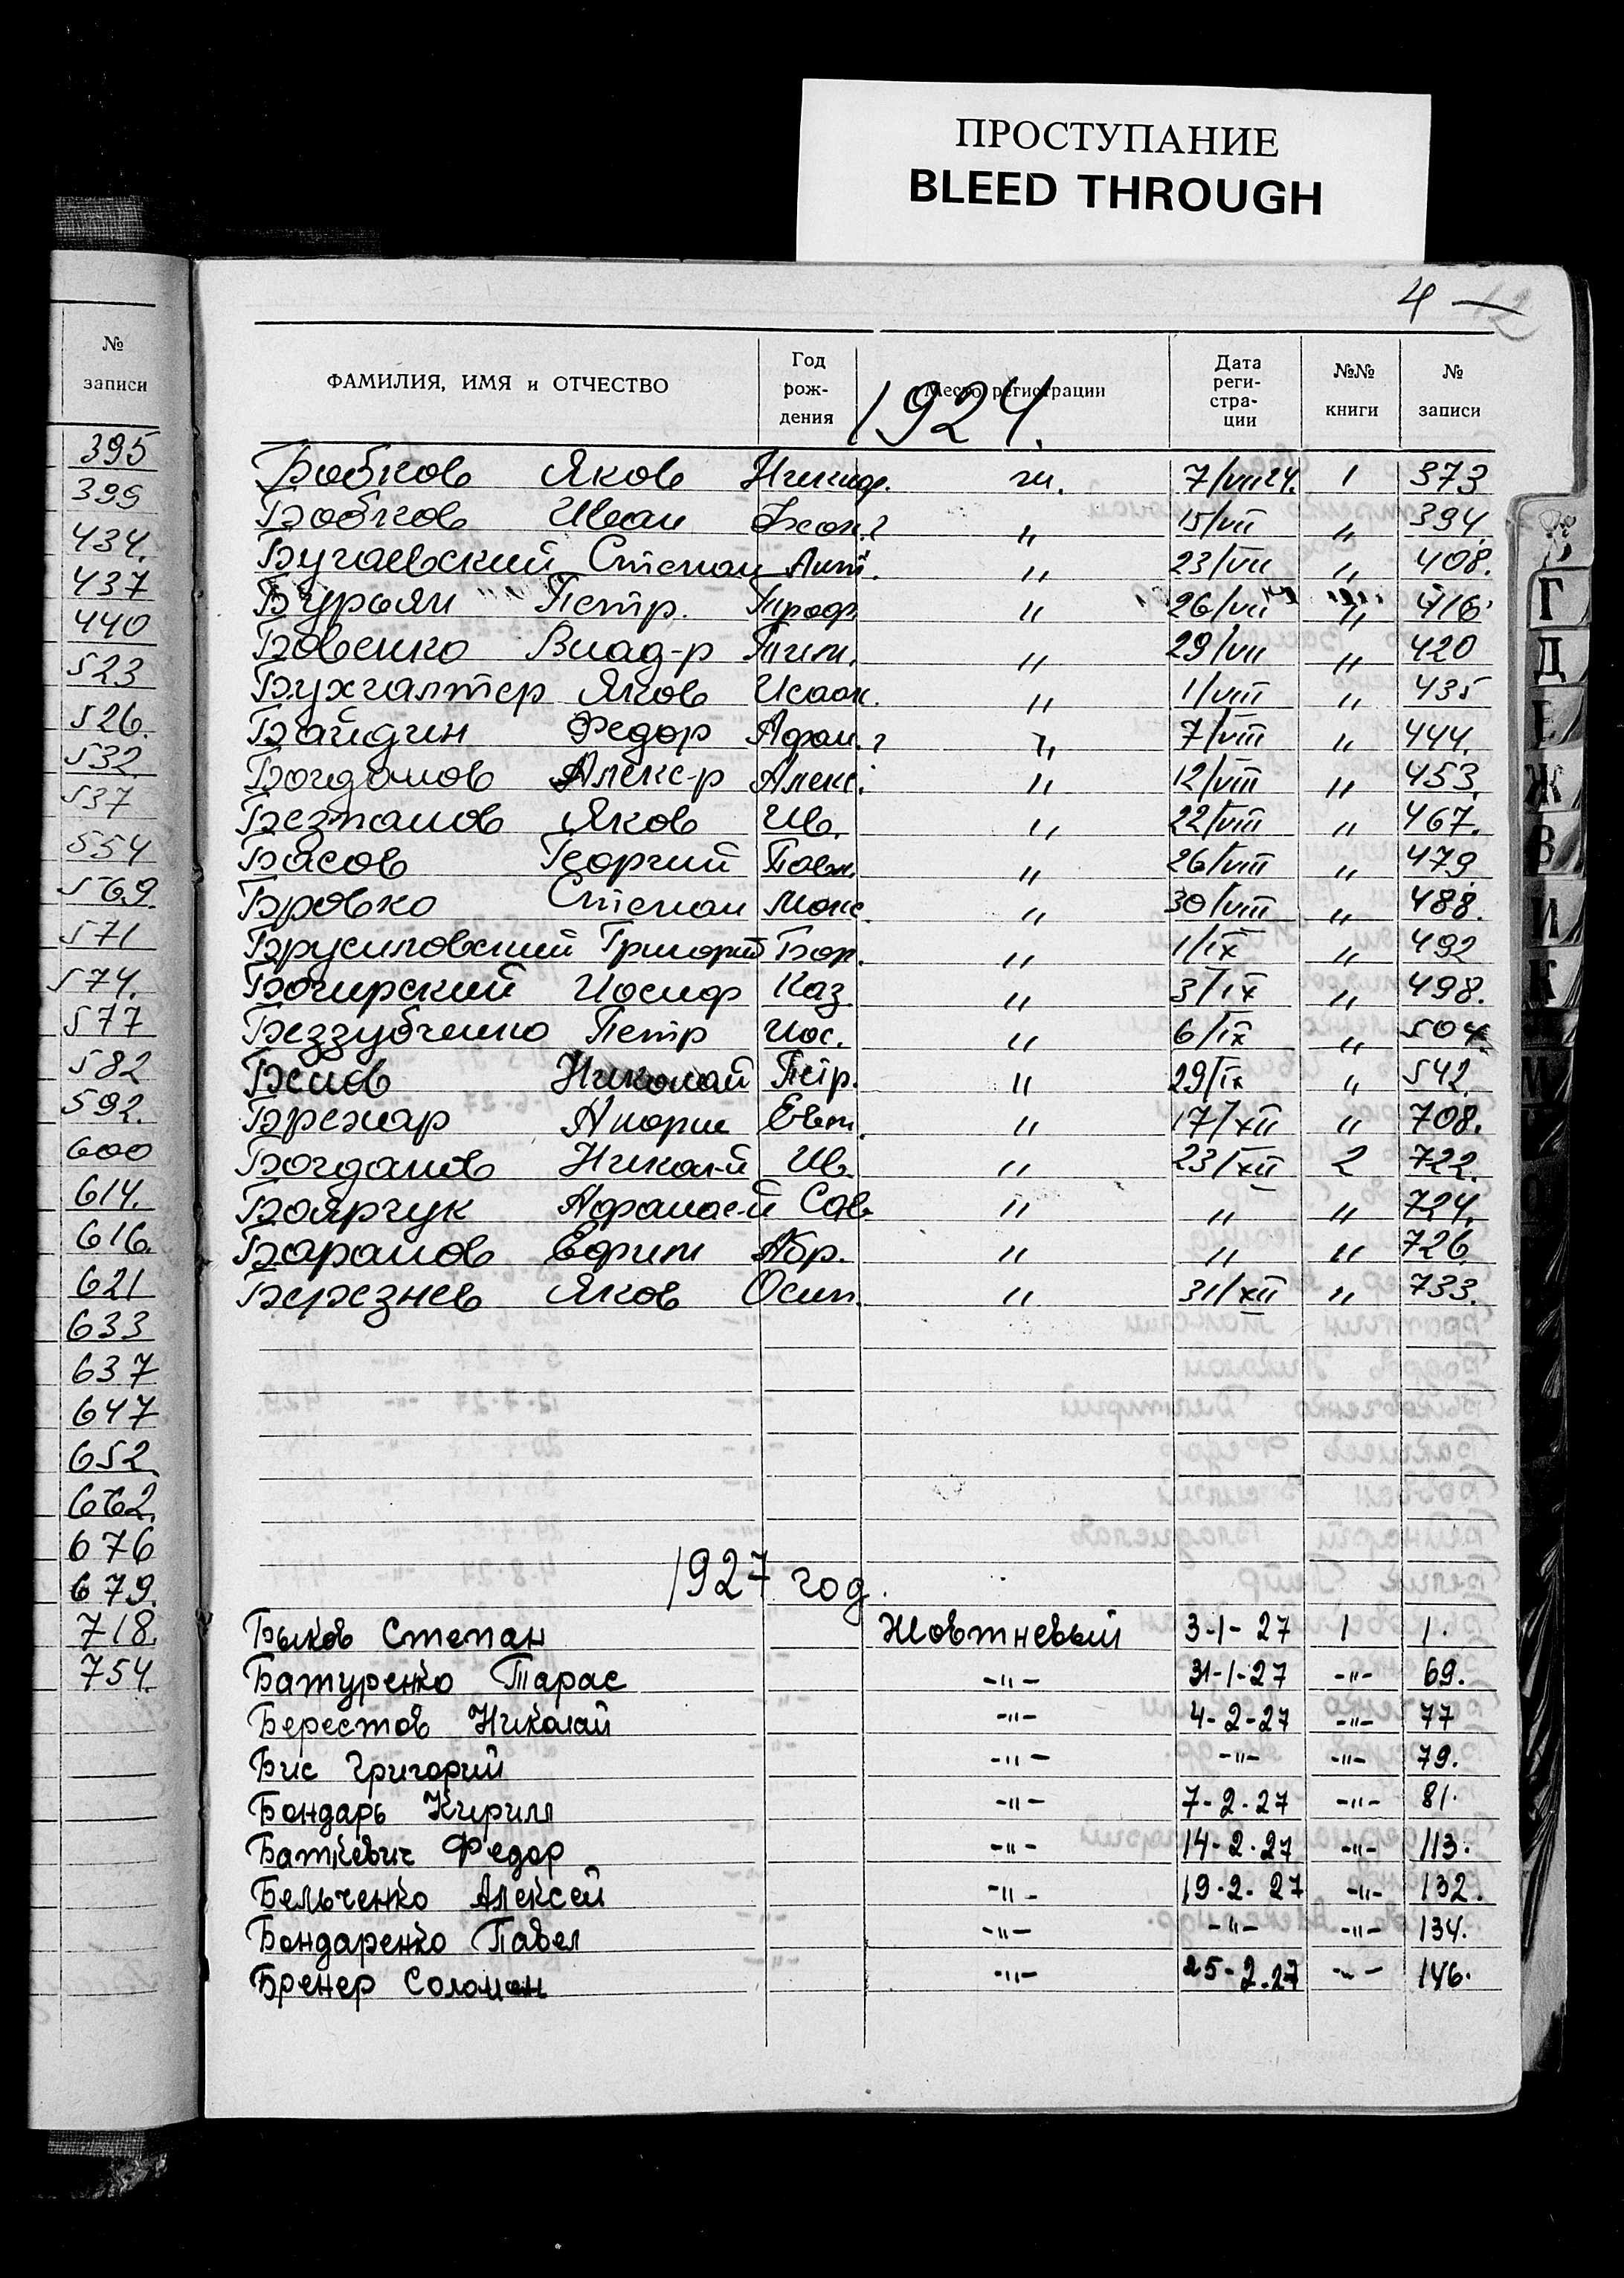 ПРОСТУПАНИЕ
BLEED THROUGH
4 — 12
№ записи
395
399
434.
437
440
523
526.
532.
537
554
569.
571
574.
577
582
592.
600
614.
616.
621
633
637
647
652.
662.
676
679.
718.
754.
ФАМИЛИЯ, ИМЯ и ОТЧЕСТВО Год рож-дения Место регистрации Дата реги-стра-ции №№ книги № записи
1924.
Бобков Яков Никиф. ж. 7/VII 24. 1 373
Бобков Иван 15/VII " 394.
Бугаевский Степан Ант. " 23/VII " 408.
Бурьян Петр. Троф. " 26/VII " 416.
Бовенко Влад-р Тим. " 29/VII " 420
Бухгалтер Яков Исаак. " 1/VIII " 435
Байдин Федор Афан. ? " 7/VIII " 444.
Богданов Алекс-р Алекс. " 12/VIII " 453.
Безпалов Яков Ив. " 22/VIII " 467.
Басов Георгий Павл. " 26/VIII " 479
Бровко Степан Макс. " 30/VIII " 488.
Брусиловский Григорий Бор. " 1/IX " 492
Богирский Иосиф Каз. " 3/IX " 498.
Беззубченко Петр Иос. " 6/IX " 504.
Белов Николай Петр. " 29/IX " 542.
Евт. " 17/XII " 708.
Богданов Никол-й Ив. " 23/XII 2 722.
Боярчук Афанас-й Сав. " " " 724.
Баранов Ефим Абр. " " " 726.
Березнев Яков Осип. " 31/XII " 733.
1927 год.
Быков Степан Жовтневый 3-1-27 1 1.
Батуренко Тарас -"- 31-1-27 -"- 69.
Берестов Николай -"- 4-2-27 -"- 77
Бис Григорий -"- -"- -"- 79.
Бондарь Кирилл -"- 7-2-27 -"- 81.
Баткевич Федор -"- 14-2-27 -"- 113.
Бельченко Алексей -"- 19-2-27 -"- 132.
Бондаренко Павел -"- -"- -"- 134.
Бренер Соломон -"- 25-2-27 -"- 146.
Г
Д
Е
Ж
З
И
К
М